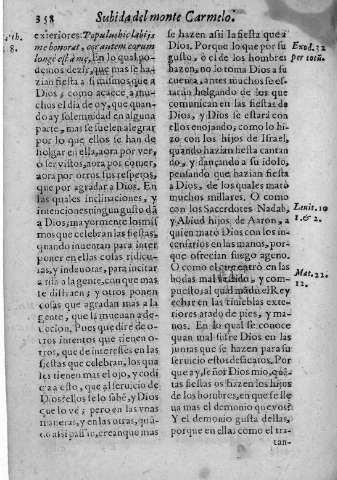 358 Subida del monte Carmelo.
8.
exteriores: Populus hic labijs
me honorat, cor autem eorum
longè est à me, En lo qual po-
demos dezir, que mas se ha-
zen fiesta a si mismos que a
Dios, como acaece, a mu-
chos el dia de oy, que quan-
do ay solemnidad en alguna
parte, mas se suelen alegrar
por lo que ellos se han de
holgar en ella, aora por ver,
o ser vistos, aora por comer,
aora por otros sus respetos,
que por agradar a Dios. En
las quales inclinaciones, y
intenciones ningun gusto dã
a Dios, mayormente los mis
mos que celebran las fiestas,
quando inuentan para inter
poner en ellas cosas ridicu-
las, y indeuotas, para incitar
a risa a la gente, con que mas
se distraen, y otros ponen
cosas que agradan mas a la
gente, que la mueuan a de-
uocion. Pues que diré de o-
tros intentos que tienen o-
tros, que de interesses en las
fiestas que celebran, los qua
les tienen mas el ojo, y codi
cia a esto, que al seruicio de
Dios? ellos se lo sabẽ, y Dios
que lo vé; pero en las vnas
maneras, y en las otras, quã-
do assi passan, crean que mas
se hazen assi la fiesta que a
Dios. Porque lo que por su
gusto, ò el de los hombres
hazen, no lo toma Dios a su
cuenta, antes muchos se es-
taràn holgando de los que
comunican en las fiestas de
Dios, y Dios se estará con
ellos enojando, como lo hi-
zo con los hijos de Israel,
quando hazian fiesta cantan
do, y dançando a su idolo,
pensando que hazian fiesta
a Dios, de los quales matò
muchos millares. O como
con los Sacerdotes Nadab,
y Abiud hijos de Aaron, a
quien matò Dios con los in-
censarios en las manos, por-
que ofrecian fuego ageno.
O como el que entrò en las
bodas mal vestido, y com-
puesto, al qual mãdò el Rey
echar en las tinieblas exte-
riores atado de pies, y ma-
nos. En lo qual se conoce
quan mal sufre Dios en las
juntas que se hazen para su
seruicio estos desacatos. Por
que ay, señor Dios mio, quã-
tas fiestas os hazen los hijos
de los hombres, en que se lle
ua mas el demonio que vos?
Y el demonio gusta dellas,
porque en ellas como el tra-
tan-
Exod. 32
per totũ.
Leuit. 10
1. & 2.
Mat. 22.
12.